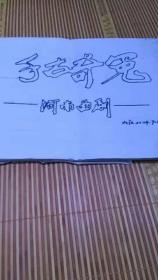 千古奇冤
——河南曲剧——